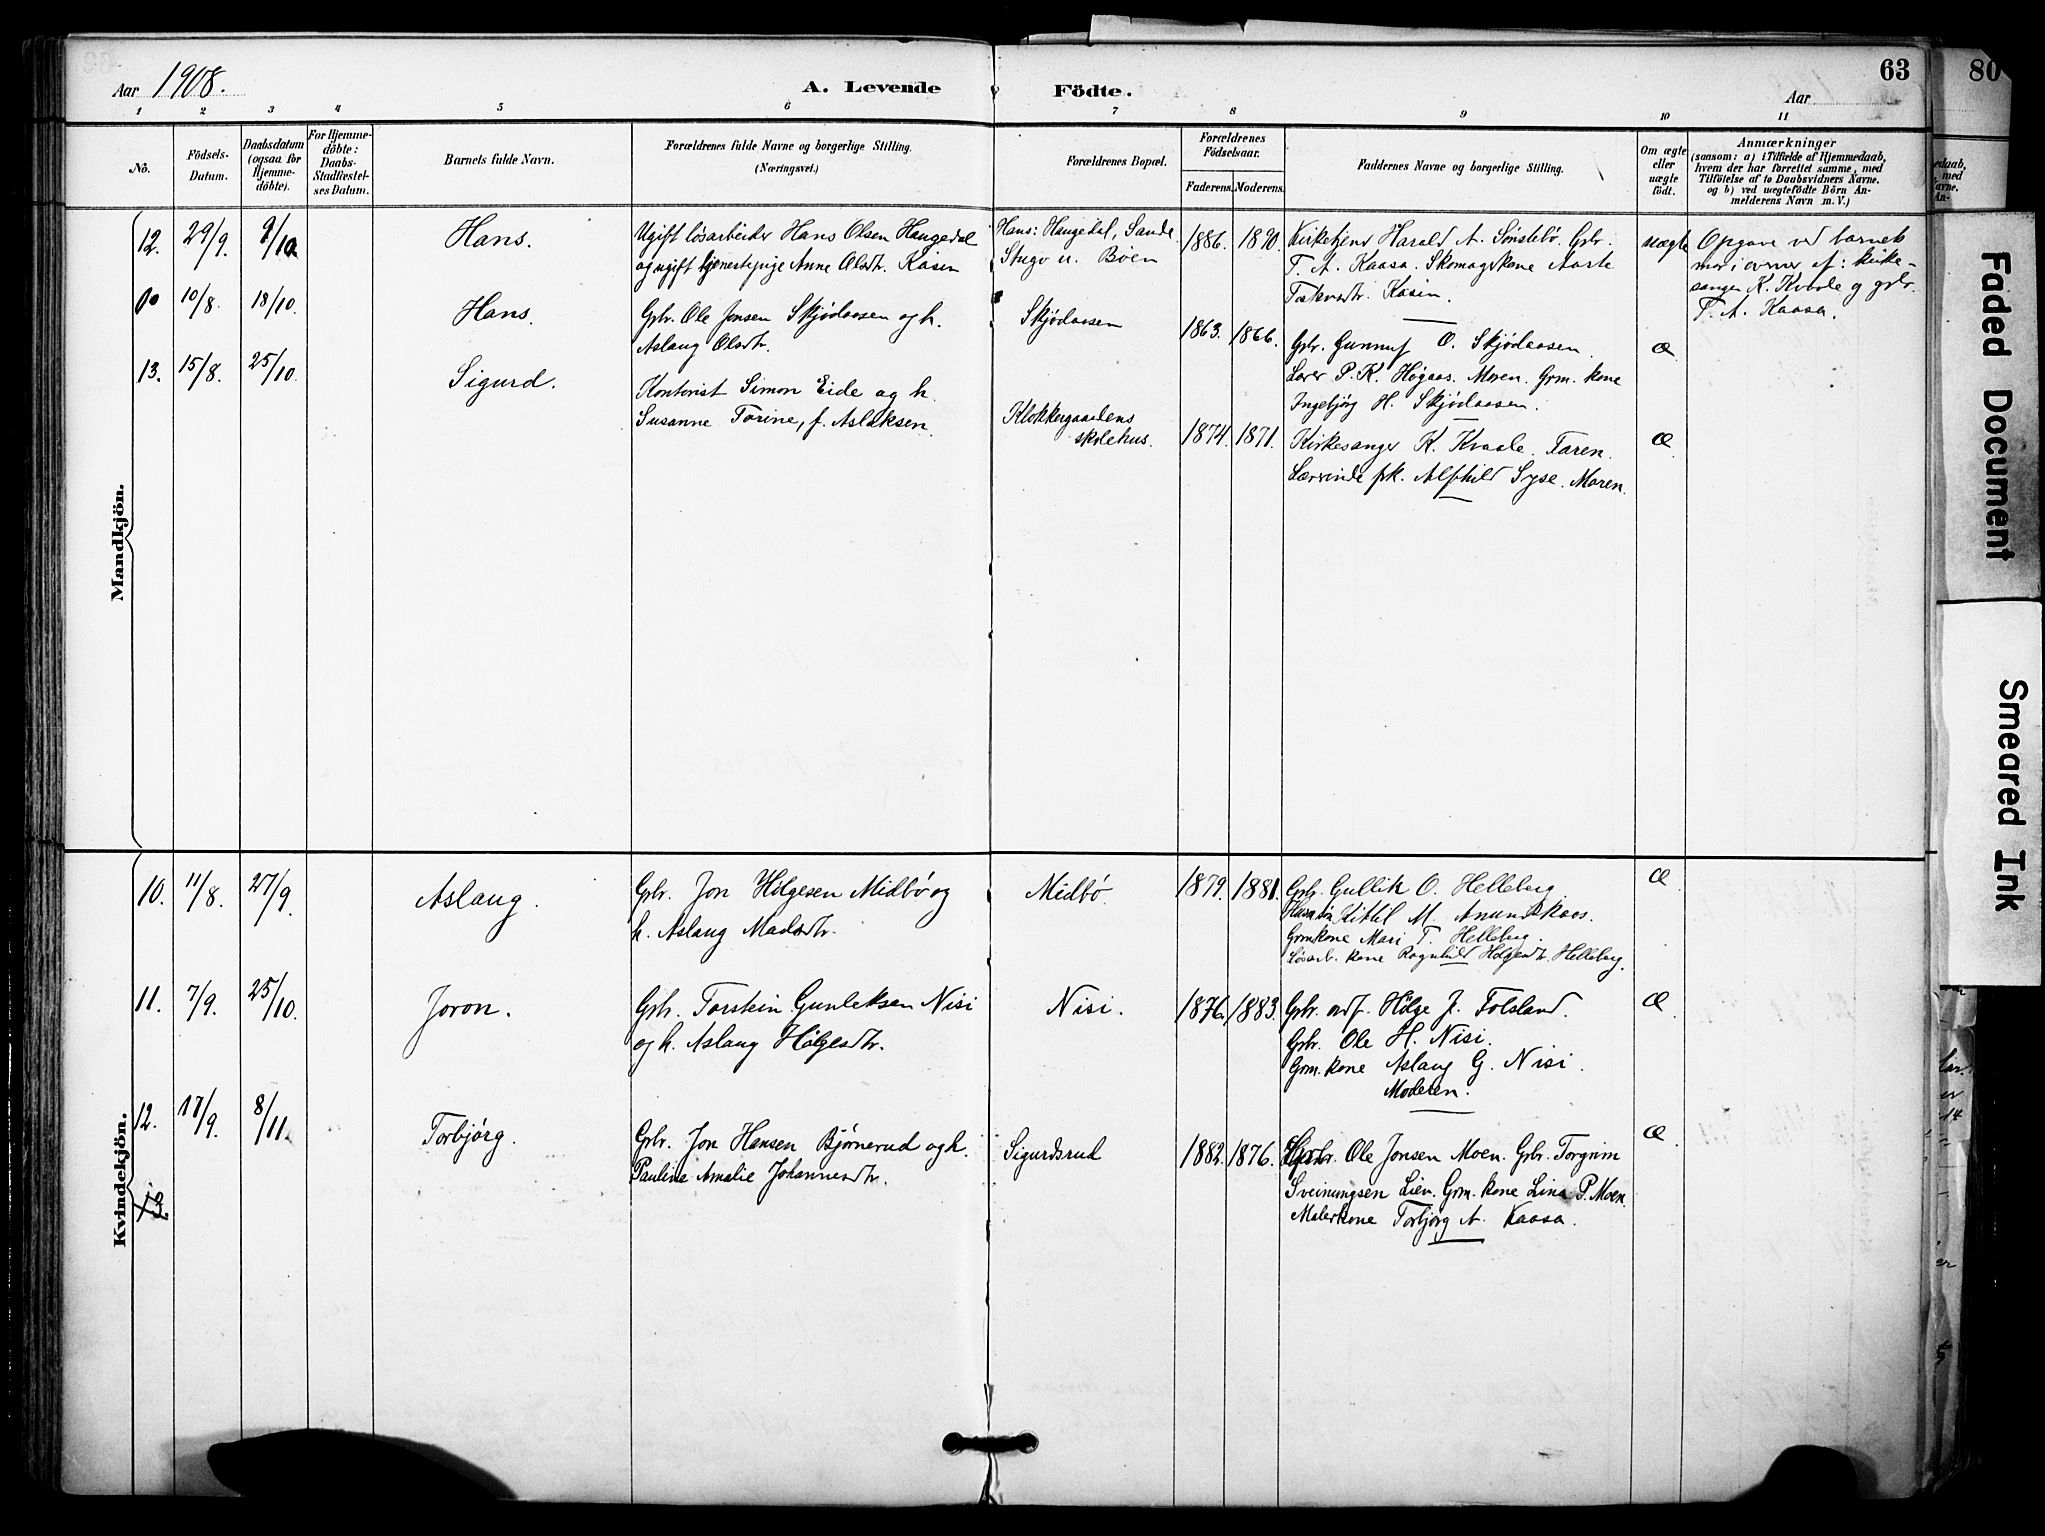 Aar 1908.
A. Levende Födte.
Aar
63
80
1 2 3 4 5 6 7 8 9 10 11
No.
Födsels-
Datum.
Daabsdatum
(ogsaa for
Hjemme-
döbte).
For Hjemme-
döbte:
Daabs-
Stadfæstel-
ses Datum.
Barnets fulde Navn.
Forældrenes fulde Navne og borgerlige Stilling.
(Næringsvei.)
Forældrenes Bopæl.
Forældrenes
Födselsaar.
Faderens. Moderens.
Faddernes Navne og borgerlige Stilling.
Om ægte
eller
uægte
födt.
Anmærkninger
(saasom: a) i Tilfælde af Hjemmedaab,
hvem der har forrettet samme, med
Tilföielse af to Daabsvidners Navne.
og b) ved uægtefödte Börn An-
melderens Navn m. V.)
Mandkjön.
12. 29/9. 9/10 Hans.
Ugift løsarbeider Hans Olsen Haugedal
og ugift tjenestepige Anne Olsdtr. Kasin
Hans: Haugedal, Sande.
Stugo u. Bøen
1886. 1890.
Kirketjener Harald A. Sønstebø. Gbr.
T. A. Kaasa. Skomagerkone Aaste
Kasin.
uægte
Opgave ved barnets
mor i overvær af: kirke-
sanger K. Kvaale og gbr.
T. A. Kaasa.
10/8. 18/10. Hans.
Gbr. Ole Jonsen Skjødaasen og h.
Aslaug Olsdtr.
Skjødaasen
1863. 1866.
Gbr. Gunnuf O. Skjødaasen.
Lærer P. K. Høgaas. Moren. Grm. kone
Ingebjørg H. Skjødaasen.
Æ
13. 15/8. 25/10. Sigurd.
Kontorist Simon Eide og h.
Susanne Torine, f. Aslaksen.
Klokkergaardens
skolehus.
1874. 1871.
Kirkesanger K. Kvaale. Faren.
Lærerinde frk. Alfhild Syse. Moren.
Æ
Kvindekjön.
10. 11/8. 27/9. Aslaug.
Gbr. Jon Hølgesen Midbø og
h. Aslaug Madsdtr.
Midbø
1879. 1881.
Gbr. Gullik O. Helleberg.
Kittil M. Anundskaas.
Grmkone Mari T. Helleberg.
Løsarb. kone Ragnhild Hølgesdtr. Helleberg.
Æ
11. 7/9. 25/10. Joron.
Gbr. Torstein Gunleksen Nisi
og h. Aslaug Hølgesdtr.
Nisi.
1876. 1883.
Gbr. Hølge J. Folsland.
Gbr. Ole H. Nisi.
Grm. kone Aslaug G. Nisi.
Moderen.
Æ
12. 17/9. 8/11. Torbjørg.
Gbr. Jon Hansen Bjørnerud og h.
Pauline Amalie Johannesdtr.
Sigurdsrud
1882. 1876.
Gbr. Ole Jonsen Moen. Gbr. Torgrim
Sveinungsen Lien. Grm. kone Lina P. Moen.
Malerkone Torbjørg A. Kaasa.
Æ
13
Faded Document
Smeared Ink